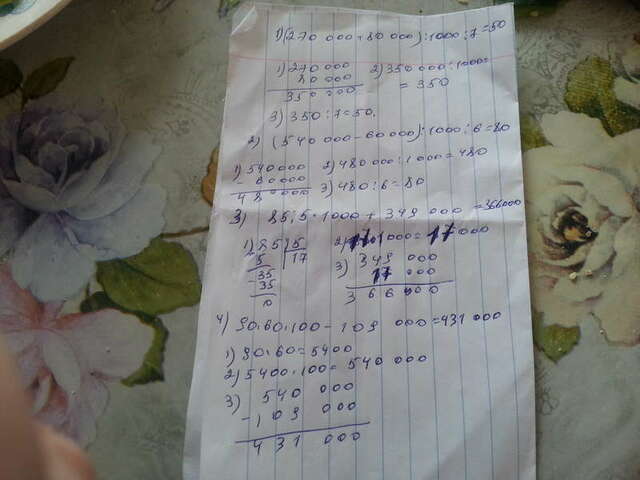 1) (270 000 + 80 000) : 1000 : 7 = 50
1) 270 000 2) 350 000 : 1000 =
80 000 = 350
350 000
3) 350 : 7 = 50.
2) (540 000 - 60000) : 1000 : 6 = 80
1) 540000 2) 480 000 : 1000 = 480
- 60000 3) 480 : 6 = 80
480000
3) 85 : 5 · 1000 + 349 000 = 366000
1) 85 | 5 2) 17 · 1000 = 17 000
5 17 3) 349 000
-35 17 000
35 366 000
0
4) 90 · 60 · 100 - 109 000 = 431 000
1) 90 · 60 = 5400
2) 5400 · 100 = 540 000
3) 540 000
- 109 000
431 000